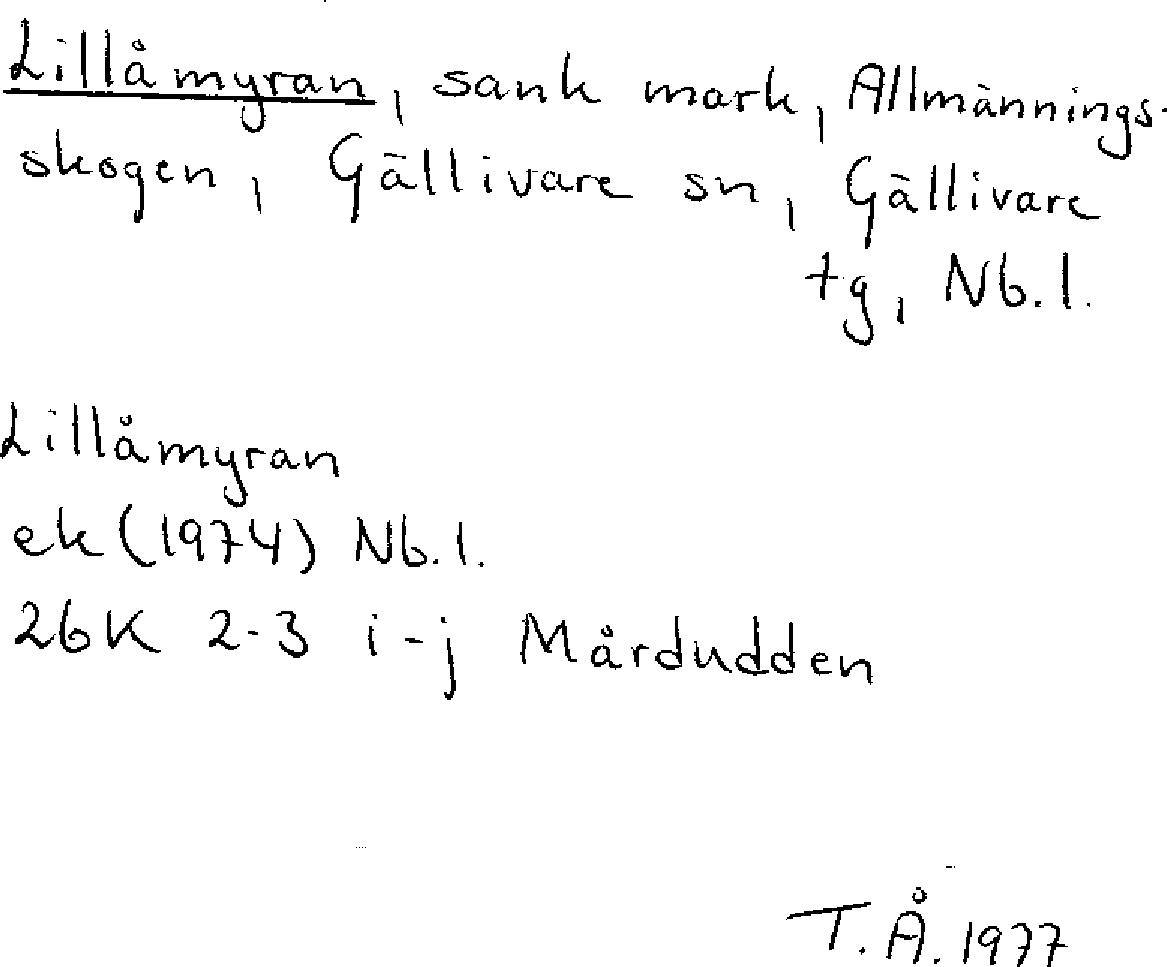 Lillåmyran, sank mark, Allmännings-
skogen, Gällivare sn, Gällivare
tg, Nb.l.
Lillåmyran
ek (1974) Nb.l.
26K 2-3 i-j Mårdudden
T.Å. 1977